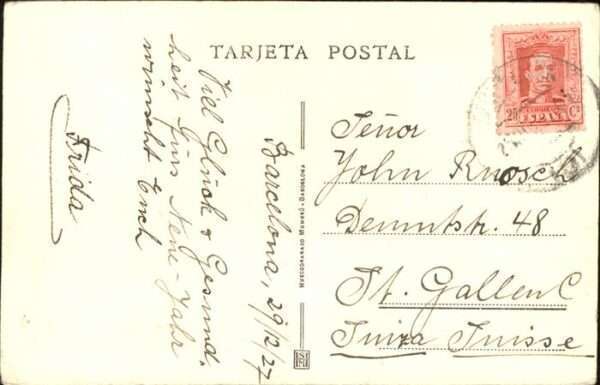 TARJETA POSTAL
Barcelona, 29/12/27
Viel Glück & Gesund-
heit fürs Neue-Jahr
wünscht Euch
Frida
HUECOGRABADO MUMBRÚ - BARCELONA
25 Cs
ESPAÑA
Señor
John Ruosch
Demutstr. 48
St. Gallen C
Suiza Suisse